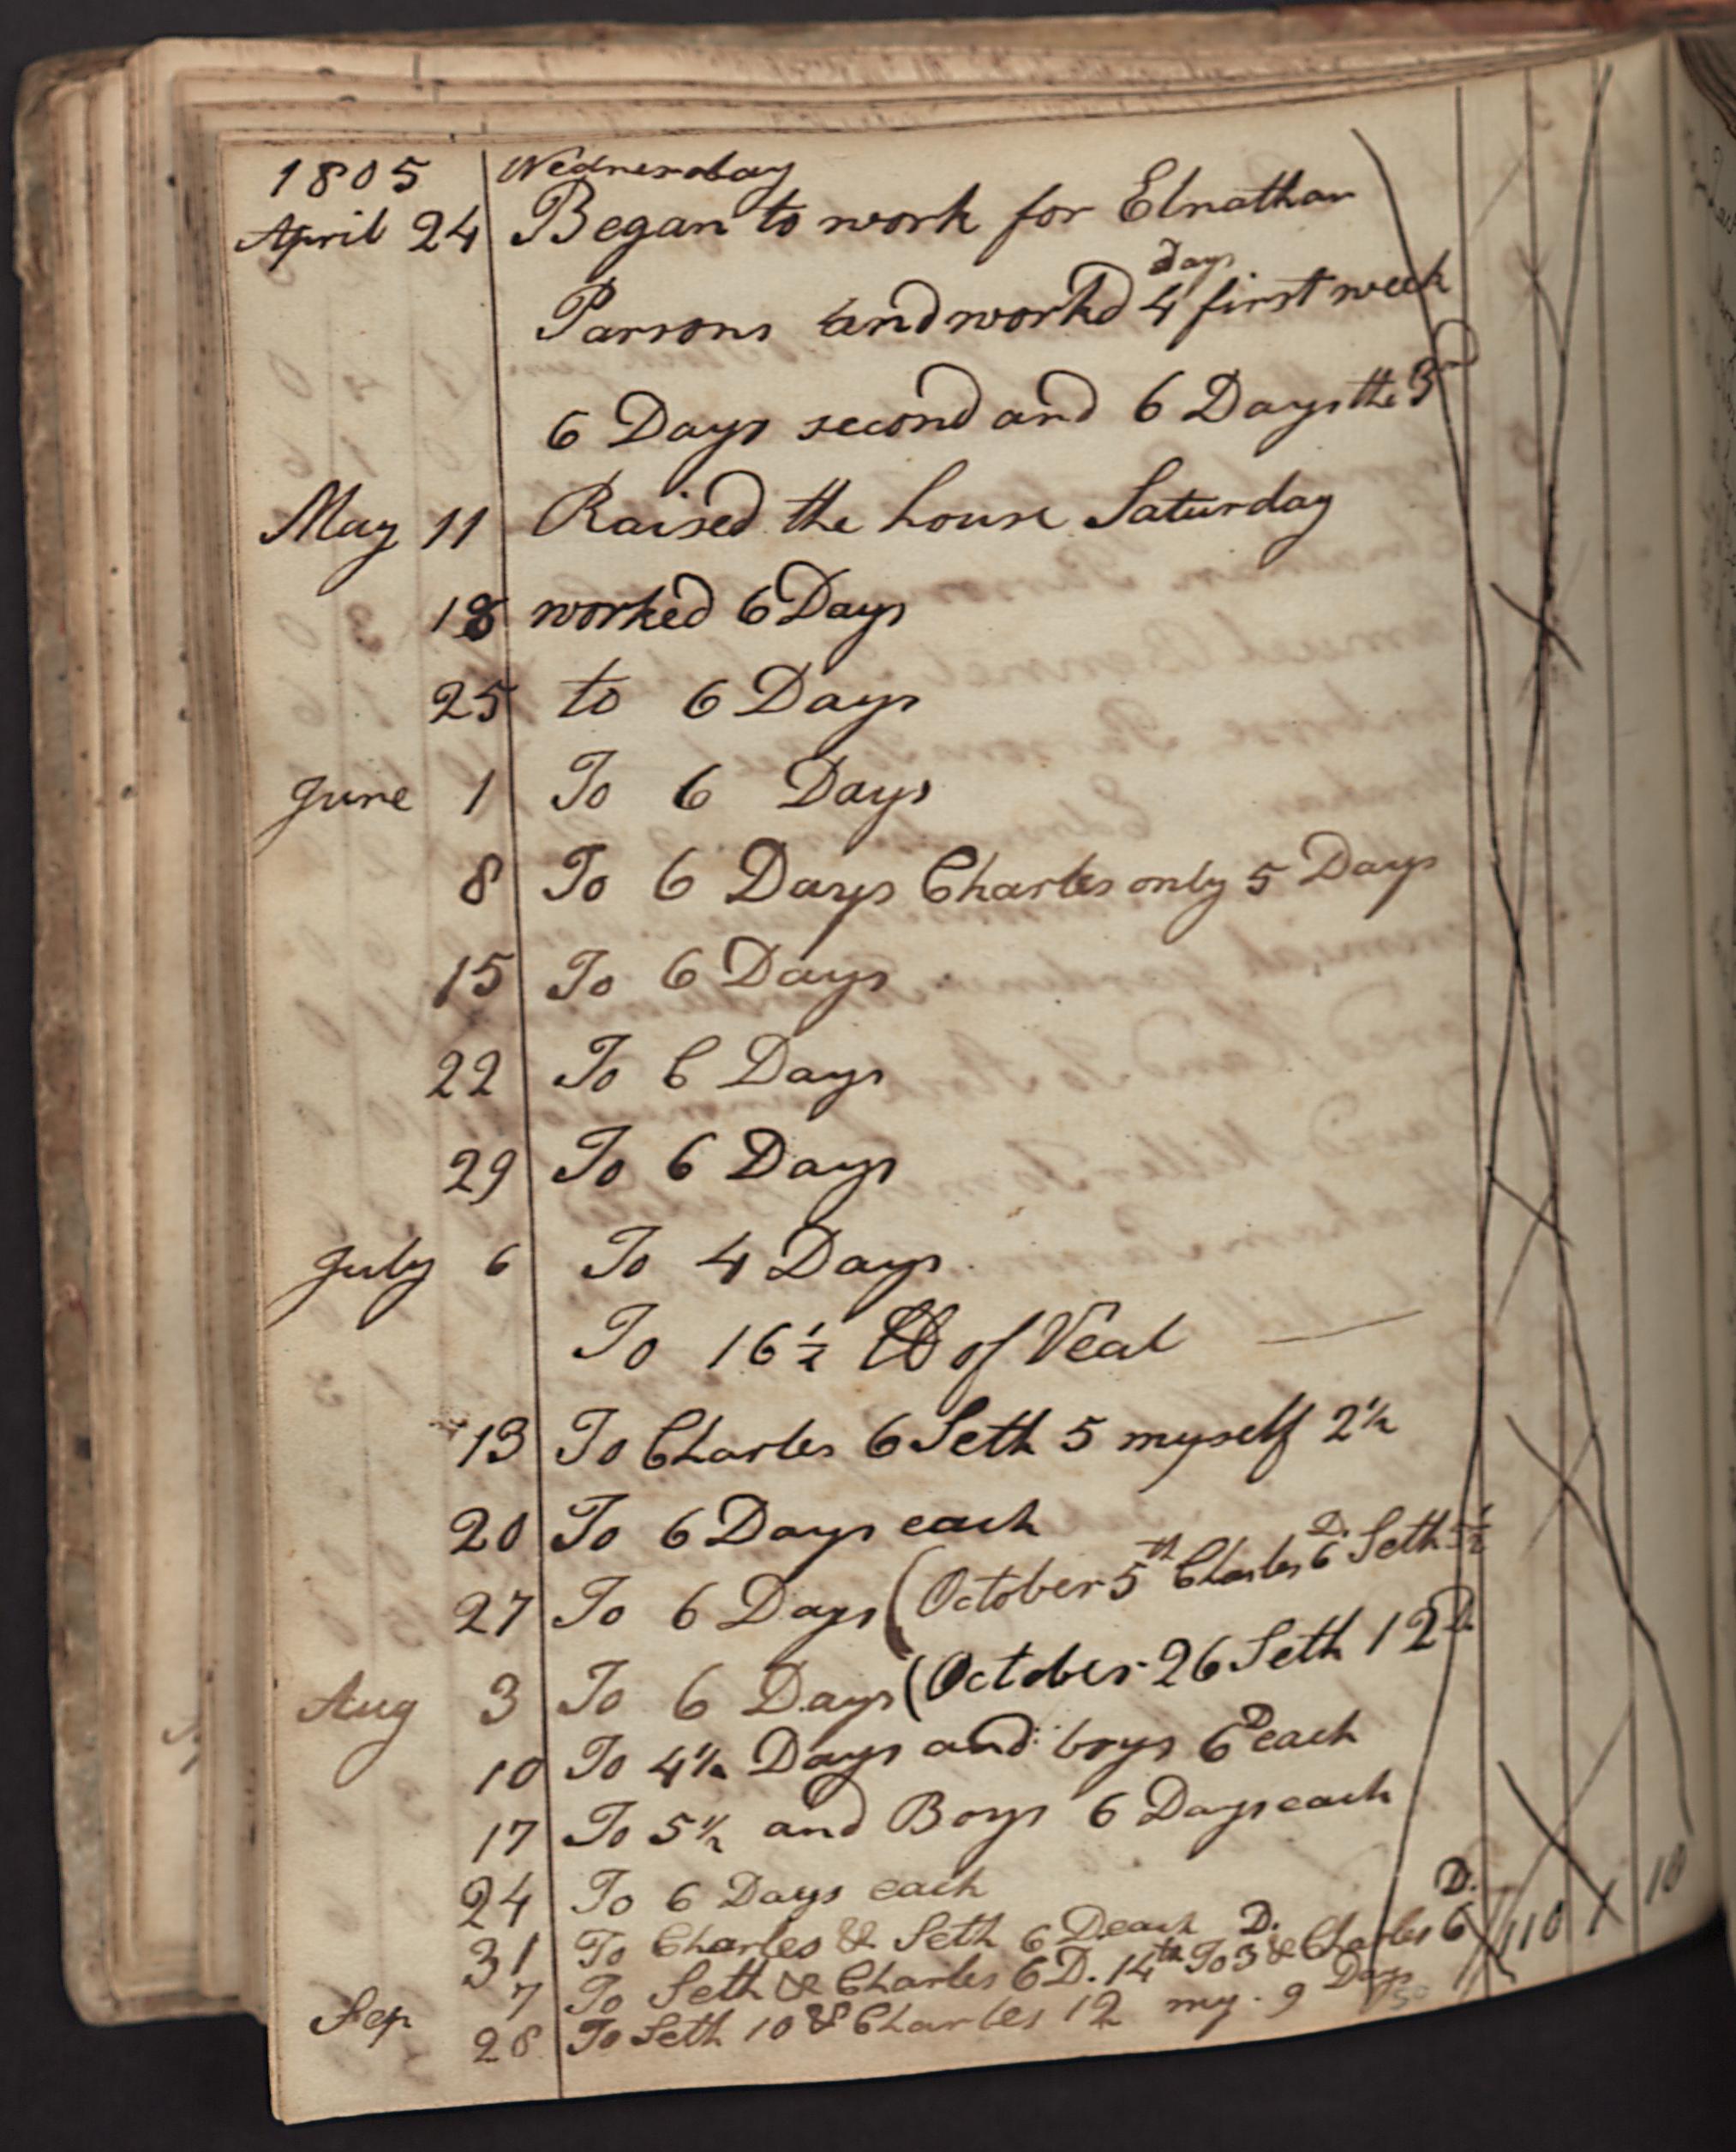 1805 Wednesday
April 24 Began to work for Elnathan
Parsons and workd 4 days first week
6 Days second and 6 Days the 3rd
May 11 Raised the house Saturday
18 worked 6 Days
25 to 6 Days
June 1 To 6 Days
8 To 6 Days Charles only 5 Days
15 To 6 Days
22 To 6 Days
29 To 6 Days
July 6 To 4 Days
To 16½ lb of Veal
13 To Charles 6 Seth 5 myself 2½
20 To 6 Days each
27 To 6 Days (October 5th Charles 6 D. Seth 5½
Aug 3 To 6 Days (October 26 Seth 12 D.
10 To 4½ Days and boys 6 D each
17 To 5½ and Boys 6 Days each
24 To 6 Days each
31 To Charles & Seth 6 D each
Sep 7 To Seth & Charles 6 D. 14th To 3 D. & Charles 6 D. 110 1 10
28 To Seth 10 & Charles 12 my. 9 Days